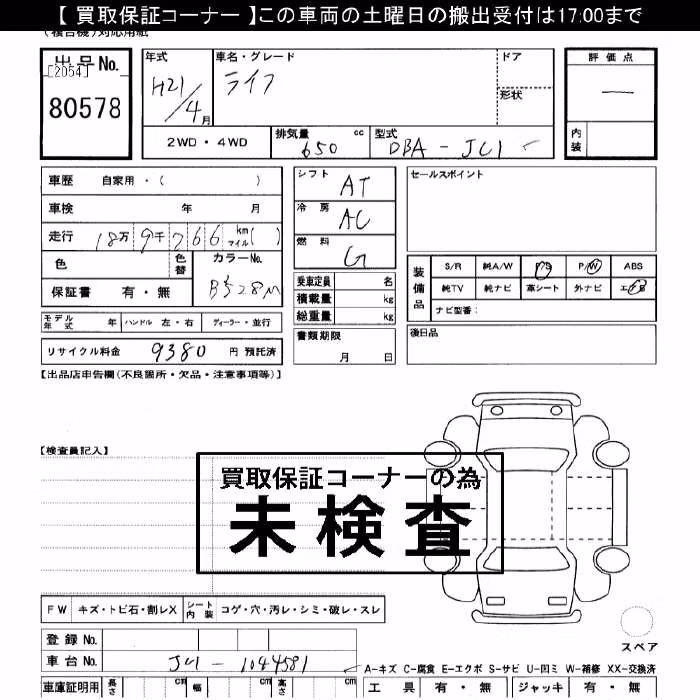 【 買取保証コーナー 】この車両の土曜日の搬出受付は17:00まで
(複合機)対応用紙
出品No.
[2054]
80578
年式
H21/4月
車名・グレード
ライフ
ドア
形状
2WD・4WD
排気量 cc
650
型式
DBA-JC1
評価点
—
内装
車歴 自家用・( )
車検 年 月
走行 18万9千766 km マイル( )
色
色替
カラーNo.
B528M
保証書 有・無
モデル年式 年
ハンドル 左・右
ディーラー・並行
リサイクル料金 9380 円 預託済
シフト AT
冷房 AC
燃料 G
乗車定員 名
積載量 kg
総重量 kg
書類期限
月 日
セールスポイント
装備品
S/R 純A/W P/S P/W ABS
純TV 純ナビ 革シート 外ナビ エアB
ナビ型番:
後日品
【出品店申告欄(不良箇所・欠品・注意事項等)】
【検査員記入】
買取保証コーナーの為
未検査
FW キズ・トビ石・割レX
シート内装 コゲ・穴・汚レ・シミ・破レ・スレ
登録No.
車台No. JC1-1044581
スペア
A-キズ C-腐食 E-エクボ S-サビ U-凹ミ W-補修 XX-交換済
車庫証明用 長さ cm 幅 cm 高さ cm
工具 有・無 ジャッキ 有・無